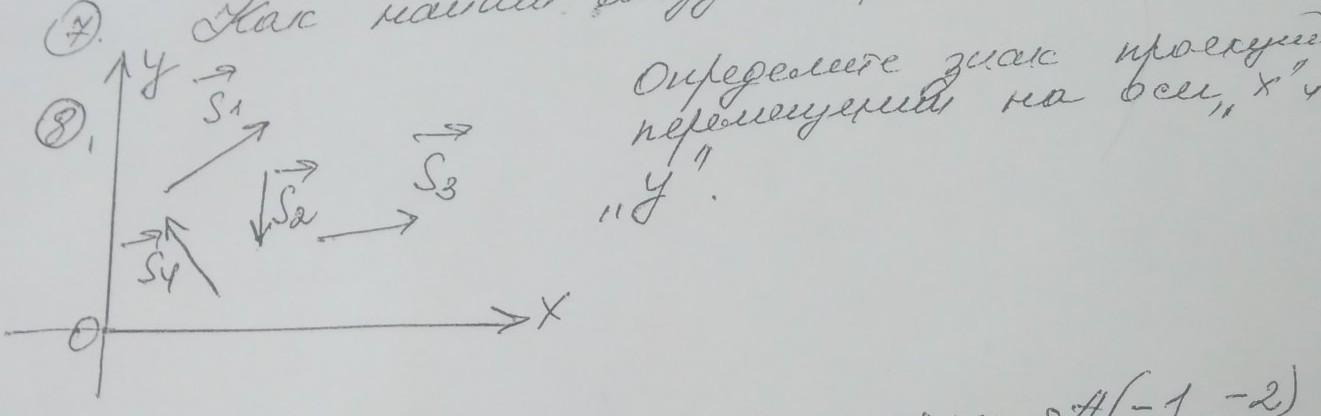 7. Как найти
y
S1
8,
S2
S3
S4
O
X
Определите знак проекции
перемещения на оси „X" и
„y".
A(-1 -2)